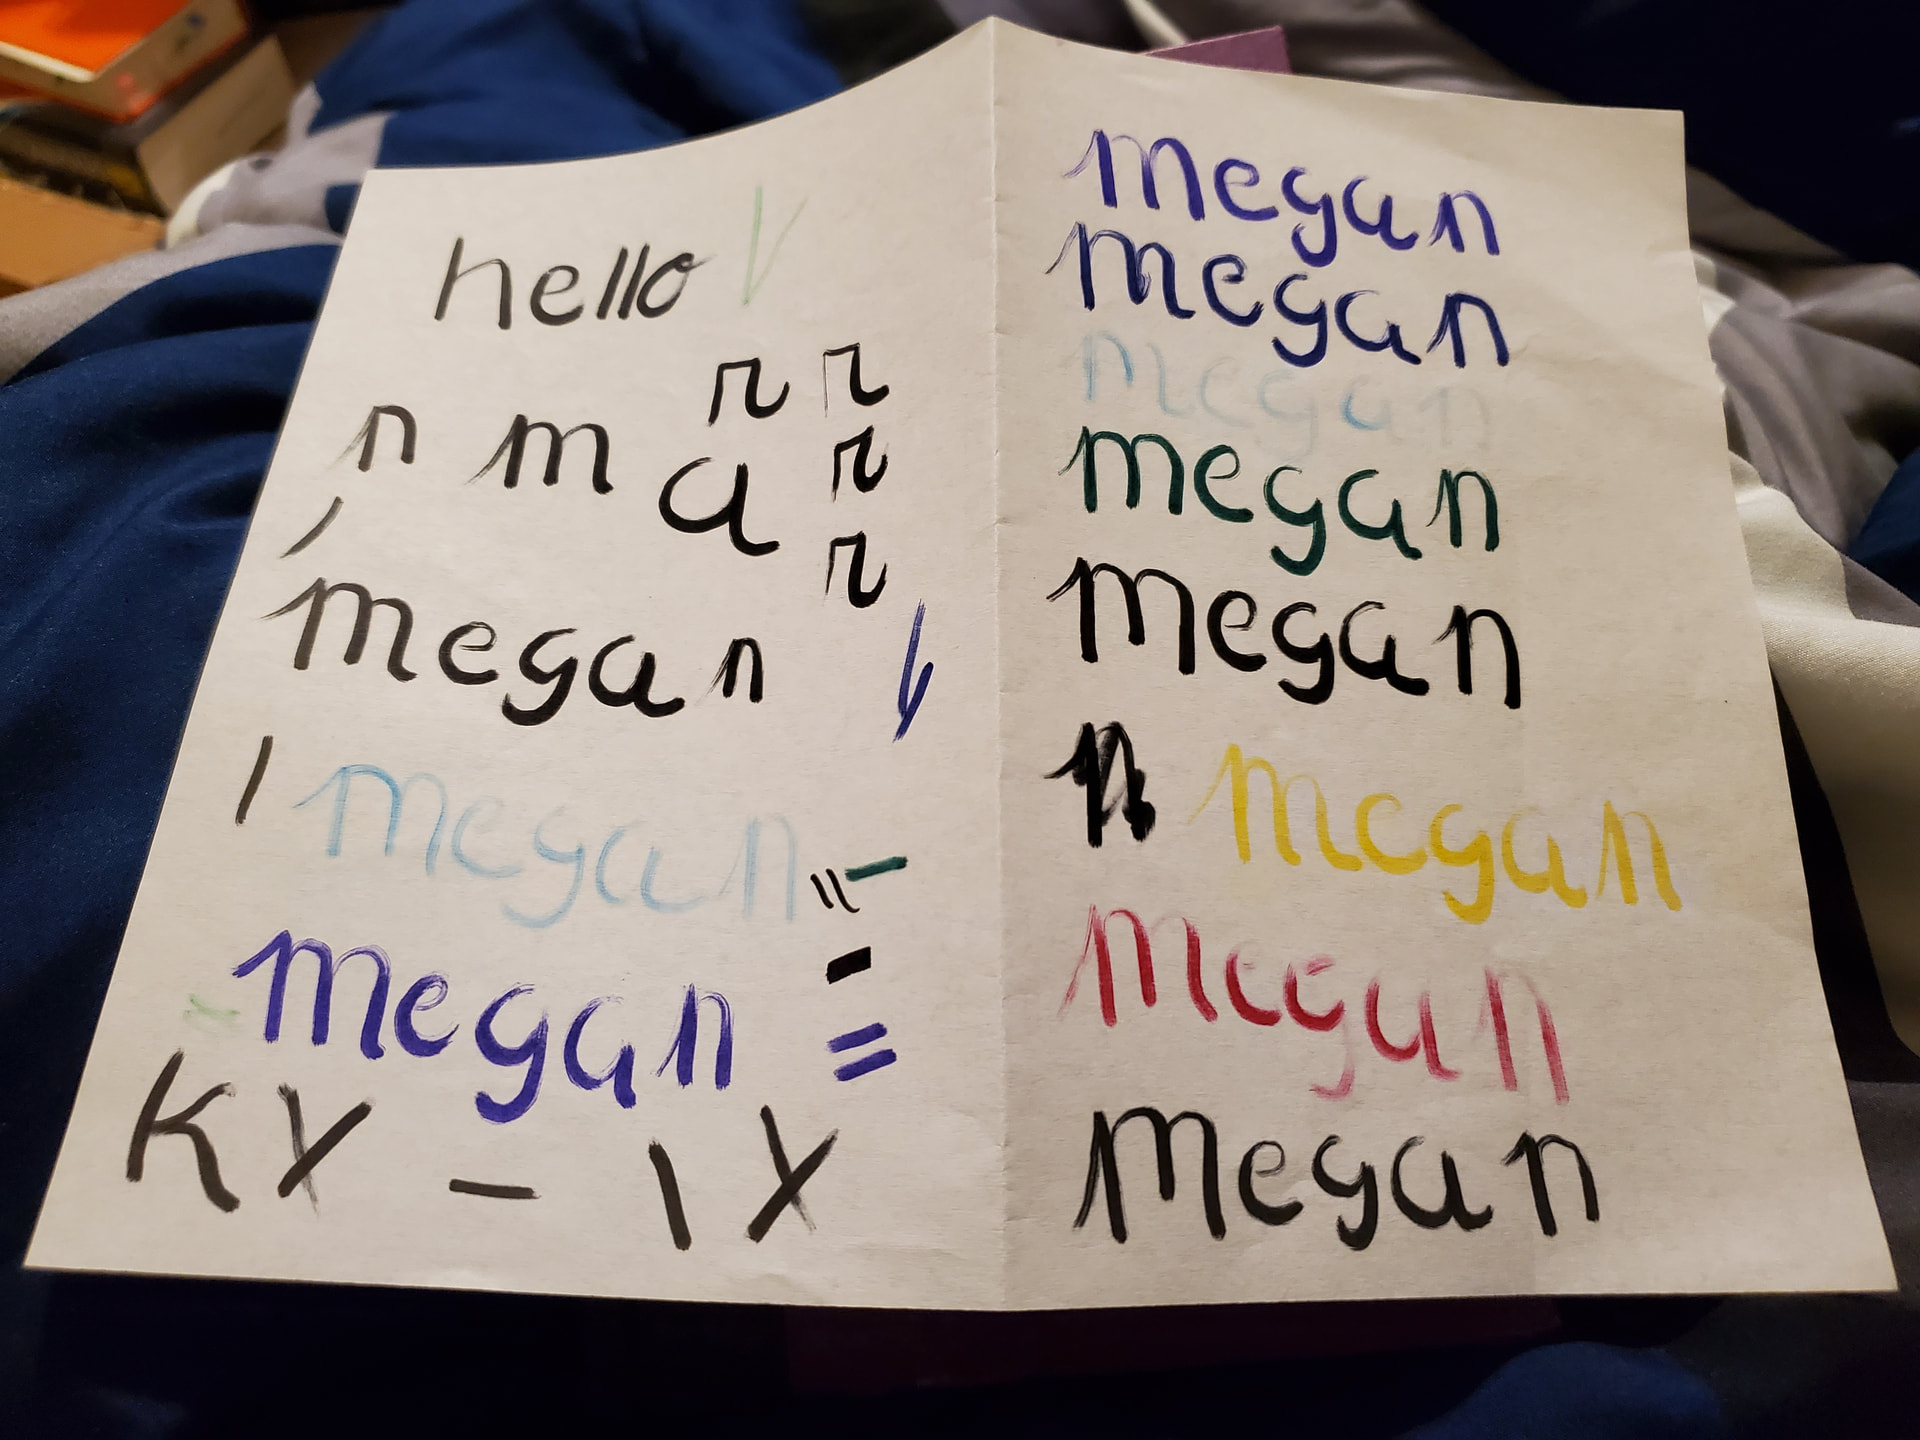 hello
r r
n m a r
r
megan
megan
megan
K X - \ X
megan
megan
megan
megan
megan
n megan
megan
megan